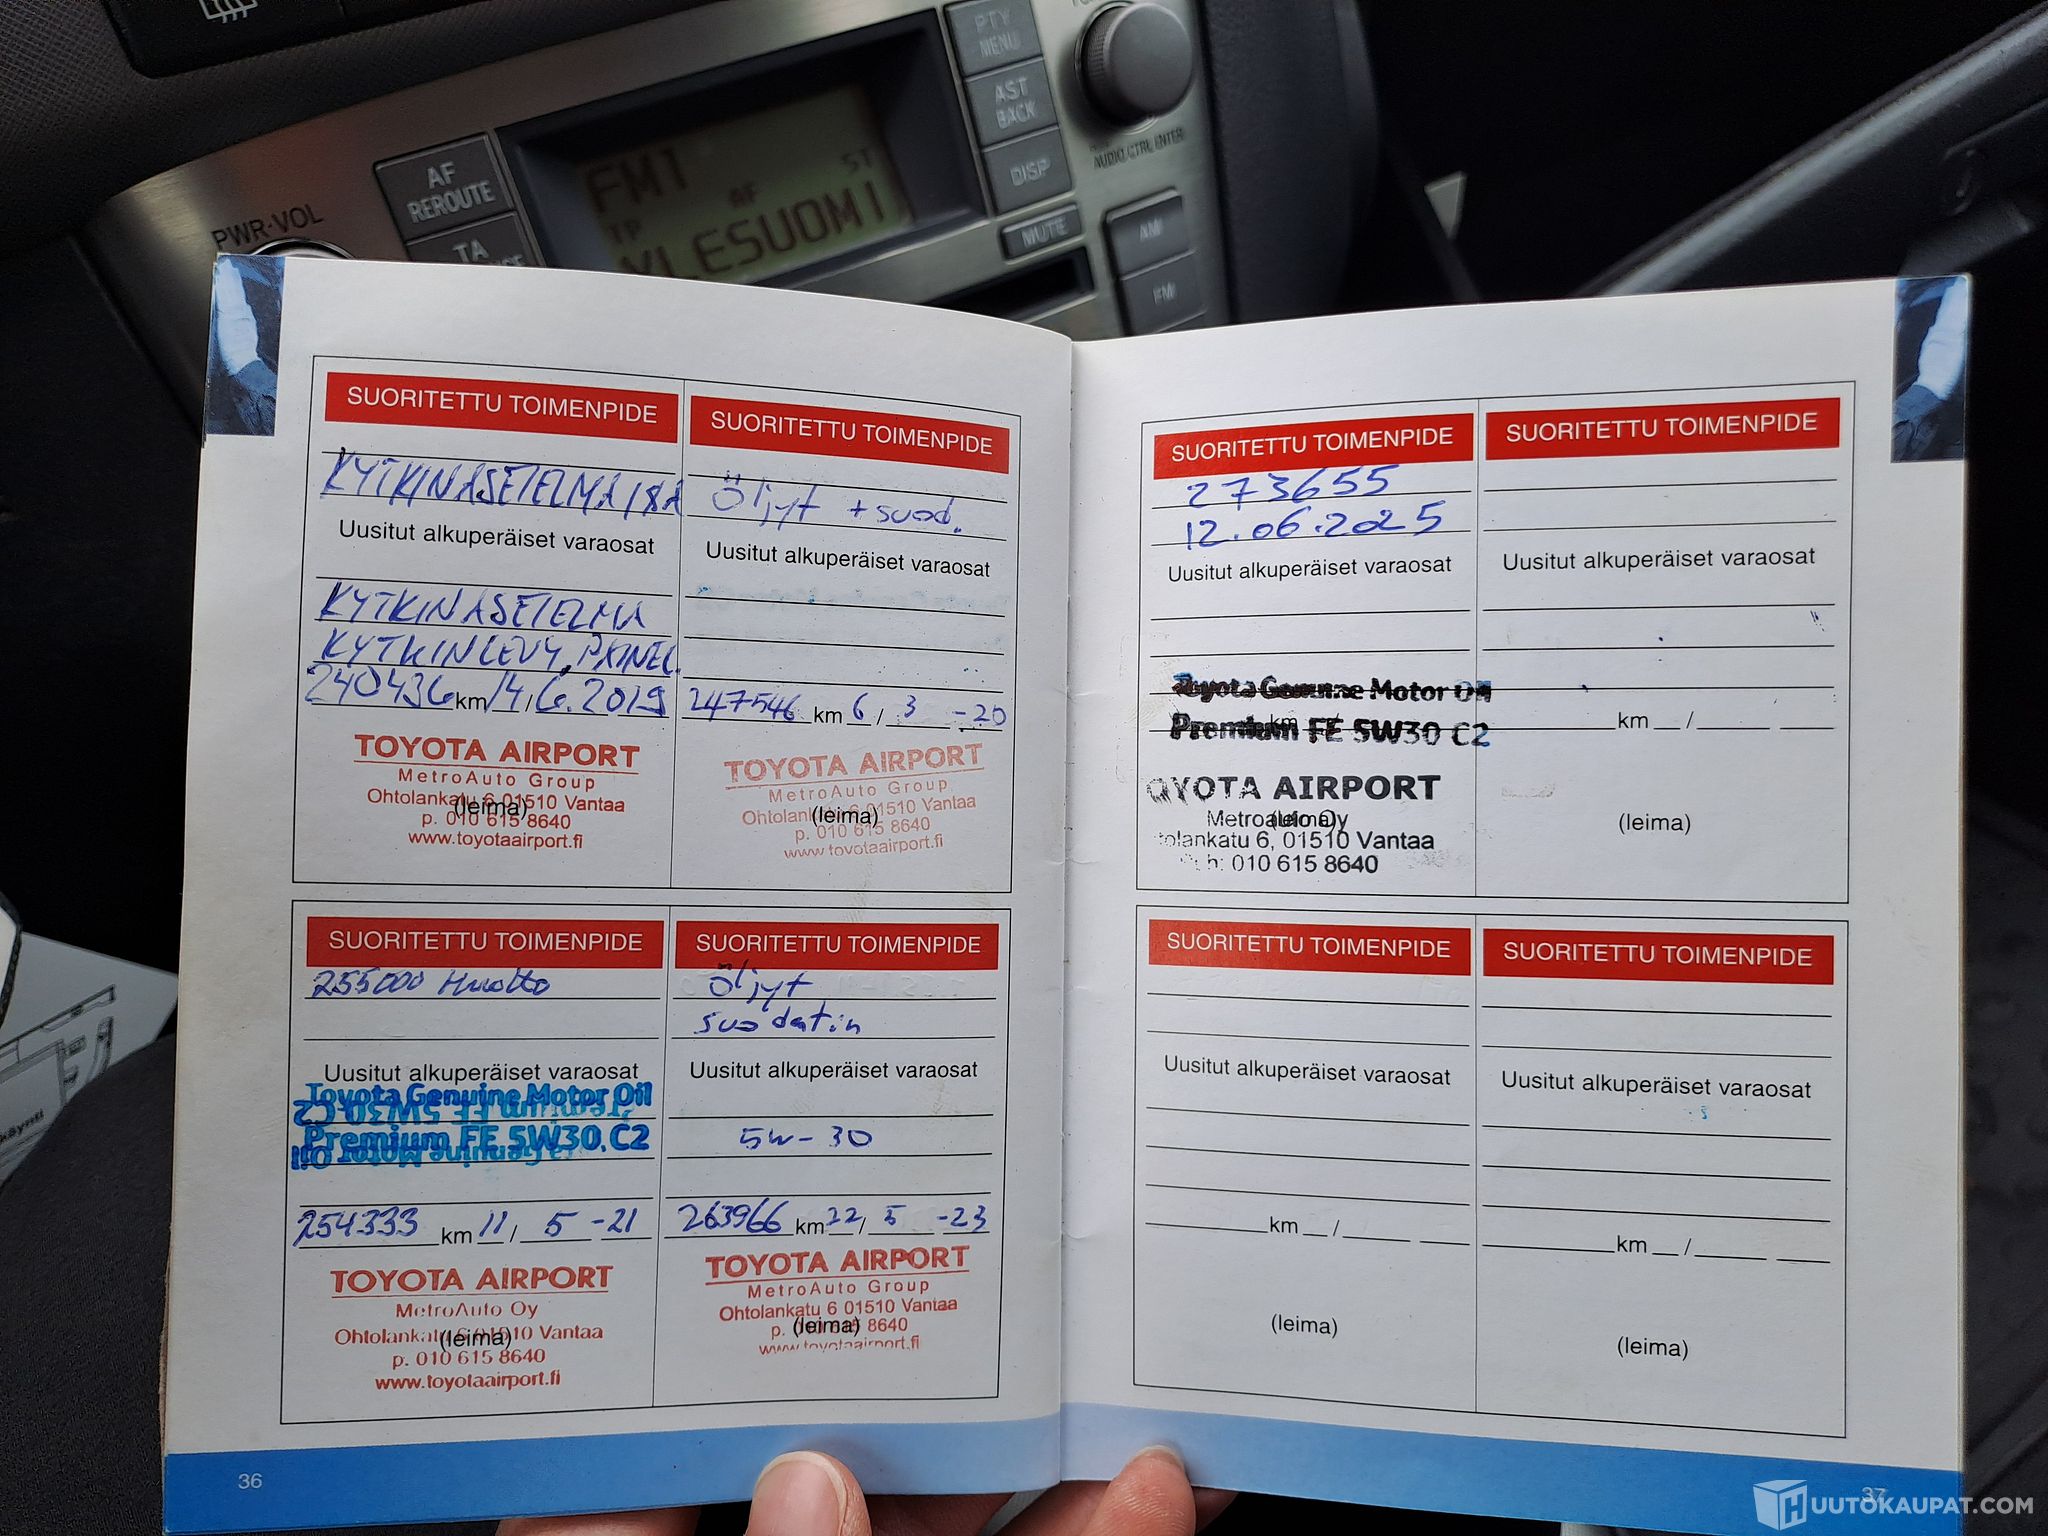 PTY
MENU
AST
BACK
DISP
AUDIO CTRL ENTER
AF
REROUTE
PWR·VOL
TA
FM1
ST
AF
TP
YLESUOMI
MUTE
AM
FM
SUORITETTU TOIMENPIDE
KYTKINASETELMA
Uusitut alkuperäiset varaosat
KYTKINASETELMA
KYTKINLEVY, PAINEL.
240436 km 14/6.2019
TOYOTA AIRPORT
MetroAuto Group
Ohtolankatu 6 01510 Vantaa
(leima)
p. 010 615 8640
www.toyotaairport.fi
SUORITETTU TOIMENPIDE
Öljyt + suod.
Uusitut alkuperäiset varaosat
247546 km 6/3 -20
TOYOTA AIRPORT
MetroAuto Group
Ohtolankatu 6 01510 Vantaa
(leima)
p. 010 615 8640
www.toyotaairport.fi
SUORITETTU TOIMENPIDE
255000 Huolto
Uusitut alkuperäiset varaosat
Toyota Genuine Motor Oil
Premium FE 5W30 C2
254333 km 11/5-21
TOYOTA AIRPORT
MetroAuto Oy
Ohtolankatu 6 01510 Vantaa
(leima)
p. 010 615 8640
www.toyotaairport.fi
SUORITETTU TOIMENPIDE
Öljyt
suodatin
Uusitut alkuperäiset varaosat
5w-30
263966 km 22/5 -23
TOYOTA AIRPORT
MetroAuto Group
Ohtolankatu 6 01510 Vantaa
(leima)
p. 010 615 8640
www.toyotaairport.fi
36
SUORITETTU TOIMENPIDE
273655
12.06.2025
Uusitut alkuperäiset varaosat
Toyota Genuine Motor Oil
km /
Premium FE 5W30 C2
TOYOTA AIRPORT
Metroauto Oy
(leima)
Ohtolankatu 6, 01510 Vantaa
Puh: 010 615 8640
SUORITETTU TOIMENPIDE
Uusitut alkuperäiset varaosat
km /
(leima)
SUORITETTU TOIMENPIDE
Uusitut alkuperäiset varaosat
km /
(leima)
SUORITETTU TOIMENPIDE
Uusitut alkuperäiset varaosat
km /
(leima)
37
HUUTOKAUPAT.COM